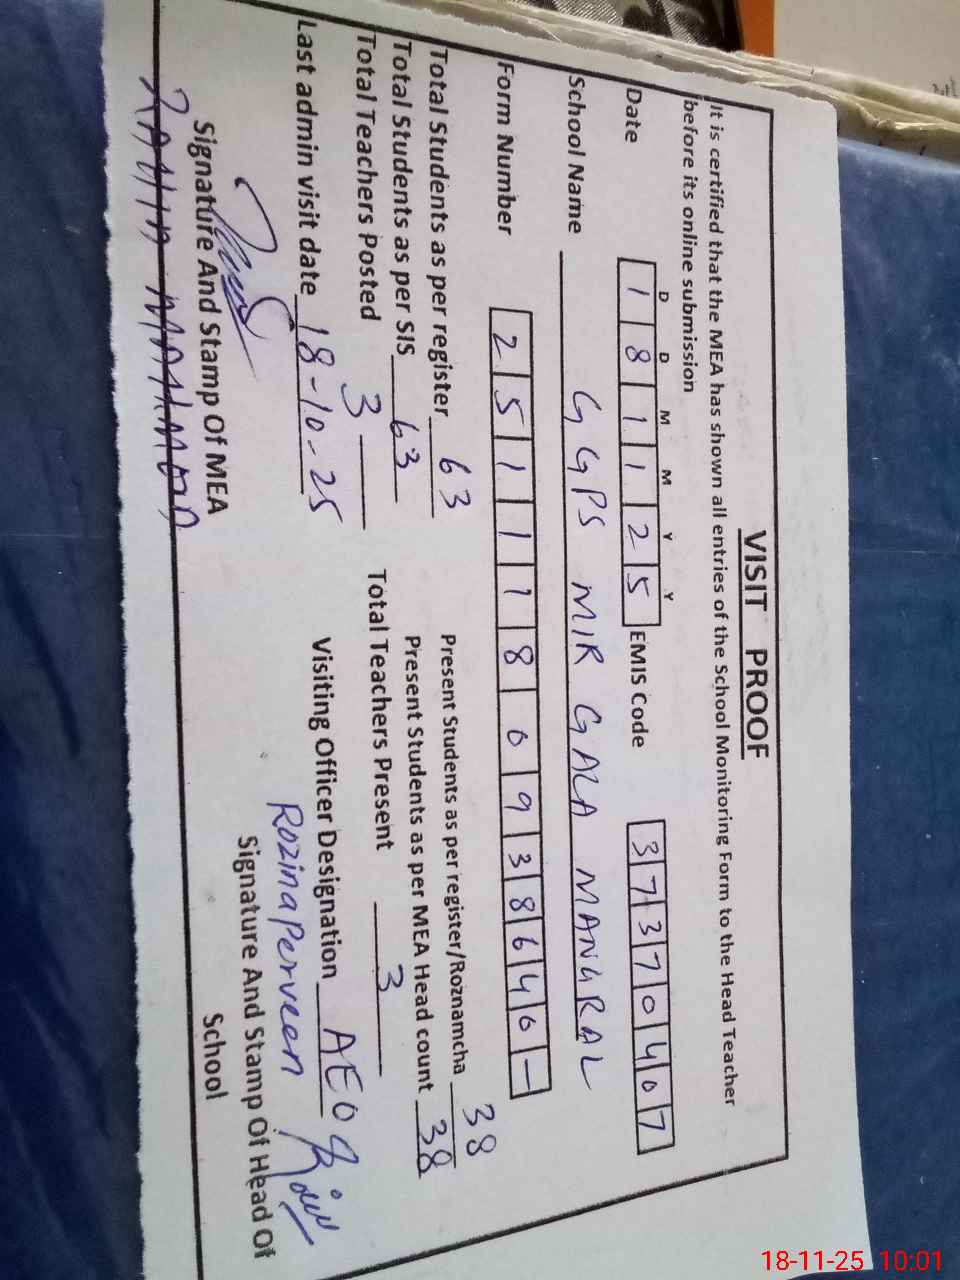 VISIT PROOF
It is certified that the MEA has shown all entries of the School Monitoring Form to the Head Teacher
before its online submission
D D M M Y Y
Date 1 8 1 1 2 5 EMIS Code 3 7 3 7 0 4 0 7
School Name GGPS MIR GALA MANGRAL
Form Number 2 5 1 1 1 8 0 9 3 8 6 4 0 -
Total Students as per register 63 Present Students as per register/Roznamcha 38
Total Students as per SIS 63 Present Students as per MEA Head count 38
Total Teachers Posted 3 Total Teachers Present 3
Last admin visit date 18-10-25 Visiting Officer Designation AEO
Rozina Perveen
Signature And Stamp Of MEA Signature And Stamp Of Head Of
School
RAHIM MAHMOOD
18-11-25 10:01